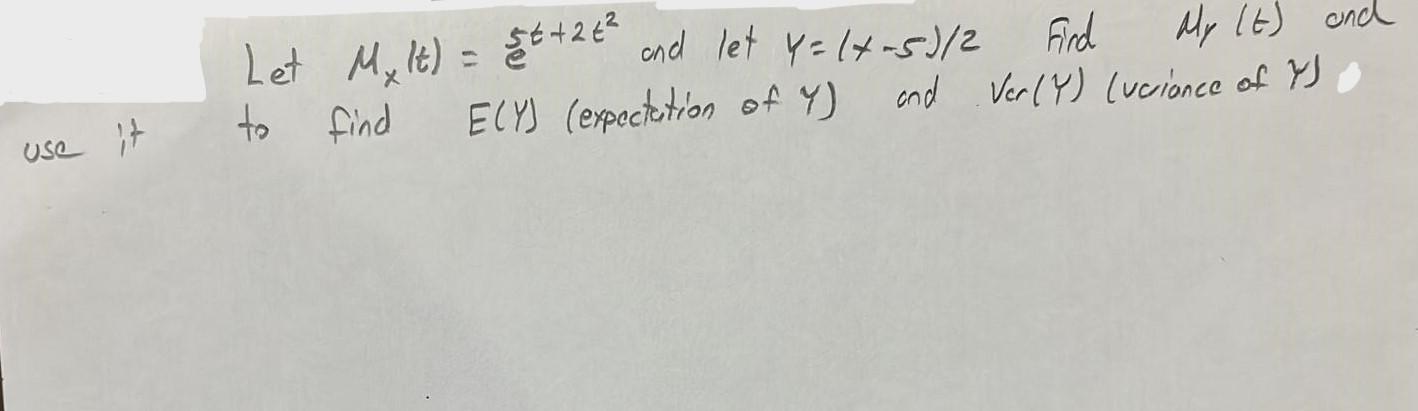 Let Mx(t) = e^5t+2t² and let Y=(x-5)/2 Find My(t) and
use it to find E(Y) (expectation of Y) and Var(Y) (variance of Y)